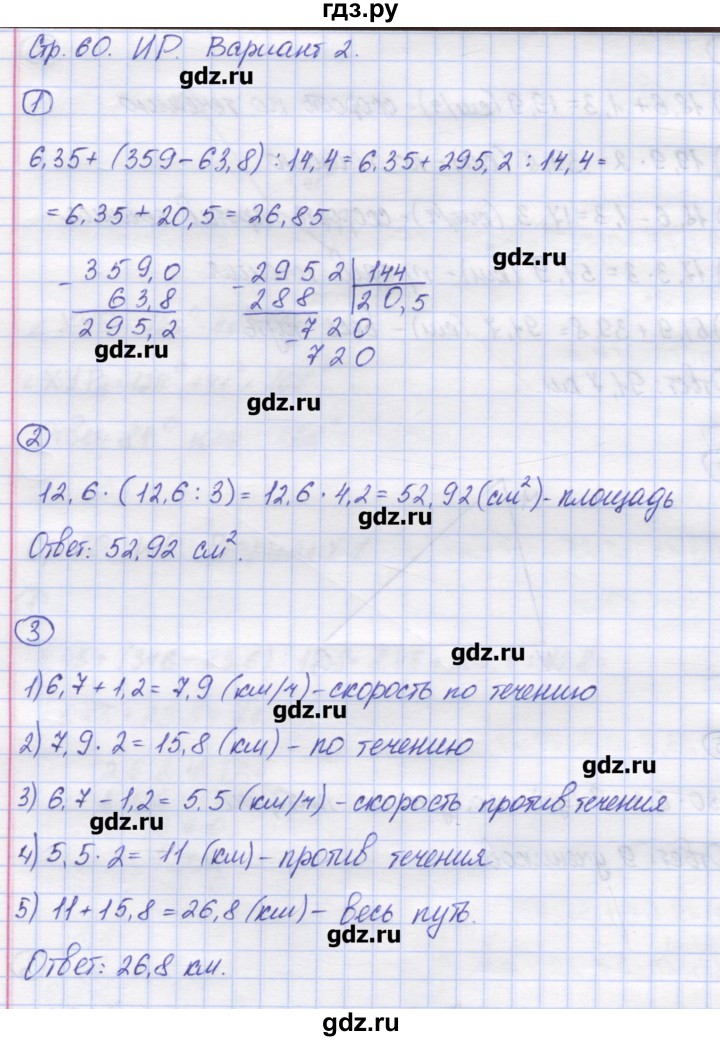 гдз.ру
Стр. 60. ИР. Вариант 2.
gdz.ru
1
6,35 + (359 - 63,8) : 14,4 = 6,35 + 295,2 : 14,4 =
= 6,35 + 20,5 = 26,85
gdz.ru
- 359,0
63,8
295,2
- 2952 | 144
288 | 20,5
- 720
720
gdz.ru
gdz.ru
2
12,6 · (12,6 : 3) = 12,6 · 4,2 = 52,92 (см²) - площадь
gdz.ru
Ответ: 52,92 см².
3
gdz.ru
1) 6,7 + 1,2 = 7,9 (км/ч) - скорость по течению
gdz.ru
2) 7,9 · 2 = 15,8 (км) - по течению
gdz.ru
3) 6,7 - 1,2 = 5,5 (км/ч) - скорость против течения
gdz.ru
4) 5,5 · 2 = 11 (км) - против течения
5) 11 + 15,8 = 26,8 (км) - весь путь.
gdz.ru
Ответ: 26,8 км.
gdz.ru